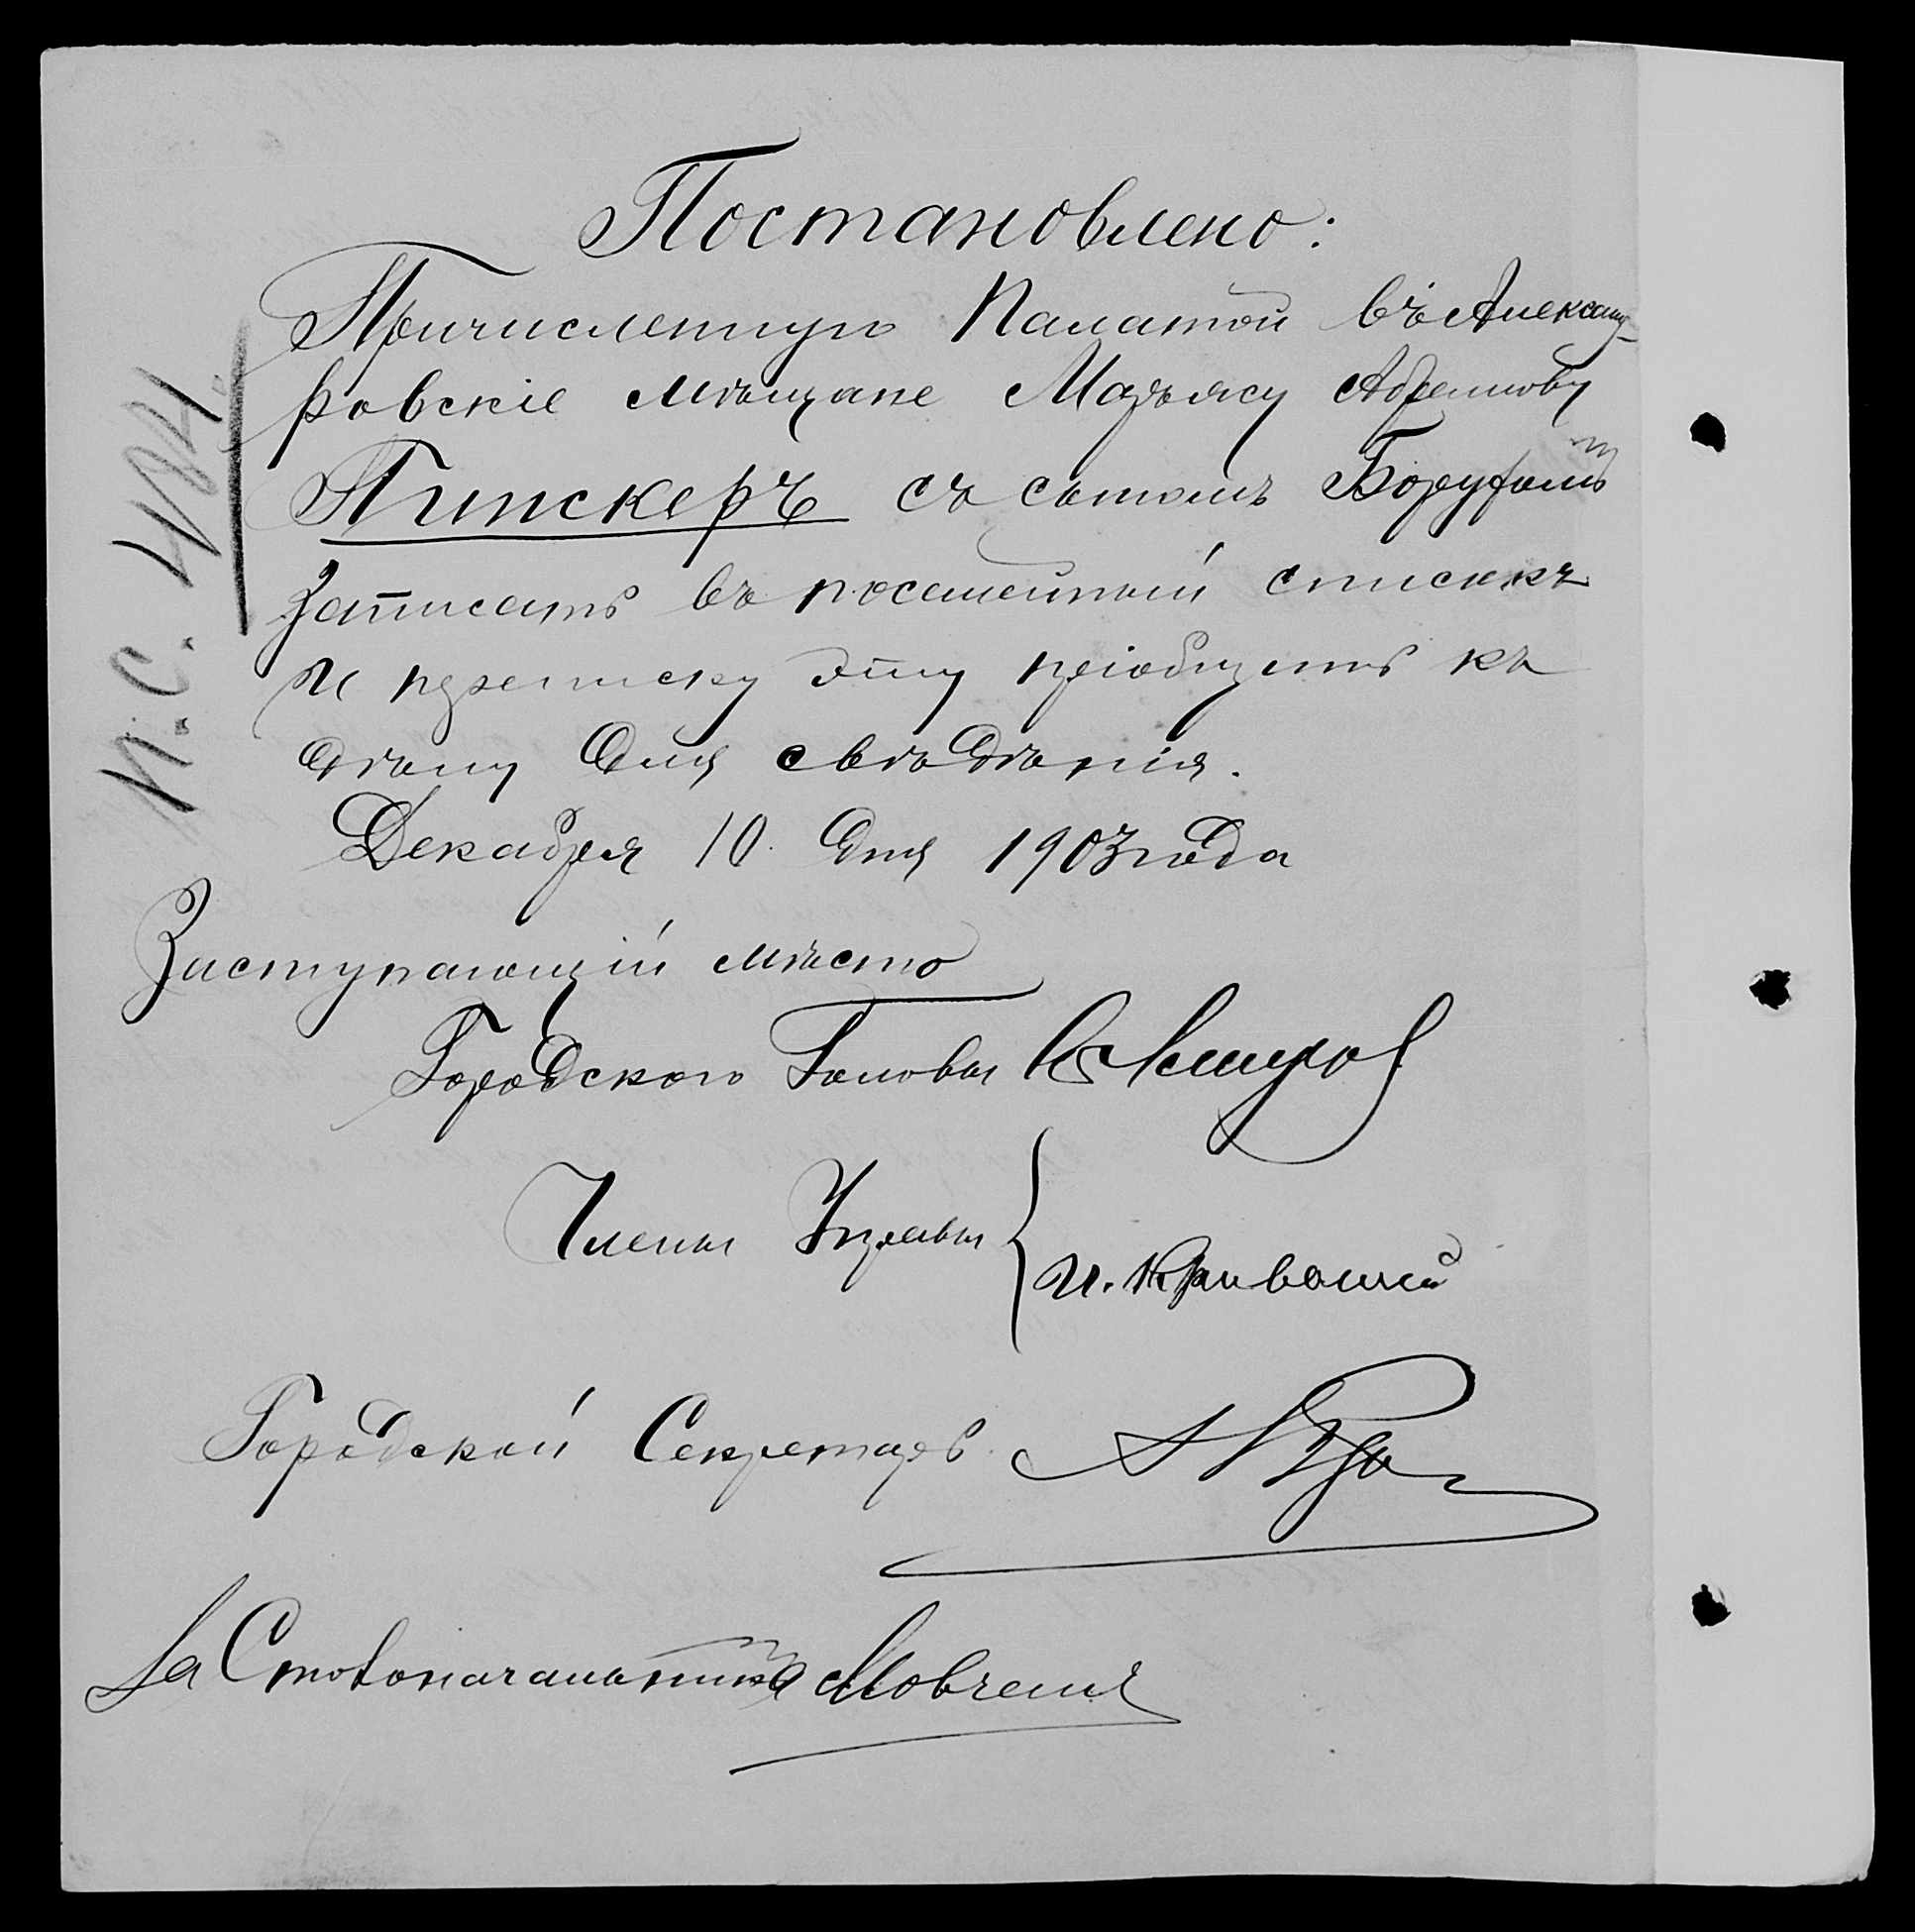 Постановлено:
Причисленную Палатой въ Александ-
ровскіе мѣщане Абрамову
Пинскеръ съ сыномъ Борухомъ
Записать въ посемейный списокъ
и переписку эту пріобщить къ
дѣлу для свѣдѣнія.
Декабря 10 дня 1903 года
Заступающій мѣсто
Городского Головы
Члены Управы
И. Кривошей
Городской Секретарь
За Столоначальника Мовчанъ
П.С.